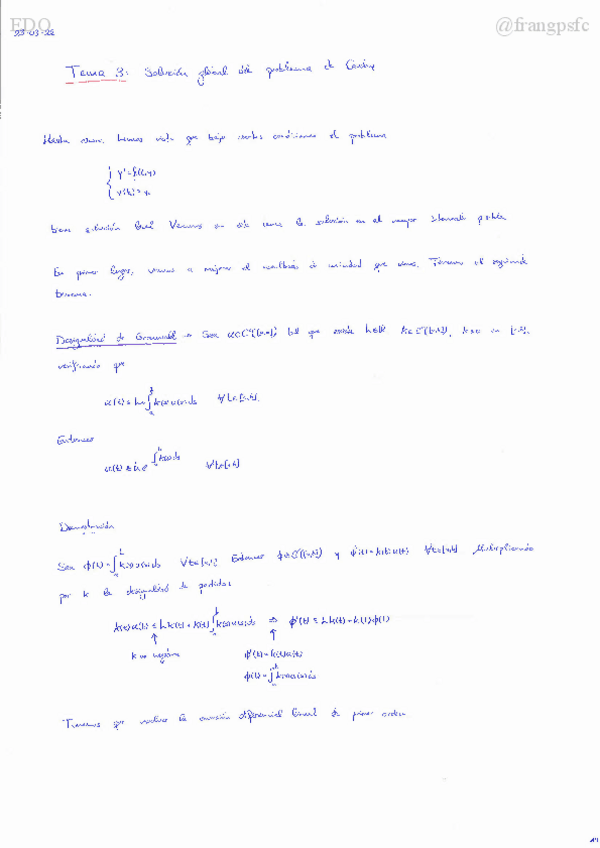 EDO
@frangpsfc
23-03-22
Tema 3: Solución global del problema de Cauchy
Hasta ahora, hemos visto que bajo ciertas condiciones el problema
y' = f(t,y)
y(t₀) = y₀
tiene solución local. Veamos en este tema la solución en el mayor intervalo posible
En primer lugar, vamos a mejorar el resultado de unicidad que vimos. Tenemos el siguiente
teorema.
Desigualdad de Gronwall → Sea u∈C⁰([a,b]) tal que existe h∈ℝ k∈C⁰([a,b]), k≥0 en [a,b],
verificando que
u(t) ≤ h+∫ₐᵗ k(s)u(s)ds ∀t∈[a,b].
Entonces
u(t) ≤ h e^{∫ₐᵗ k(s)ds} ∀t∈[a,b]
Demostración
Sea ϕ(t) = ∫ₐᵗ k(s)u(s)ds ∀t∈[a,b]. Entonces ϕ∈C¹([a,b]) y ϕ'(t) = k(t)u(t) ∀t∈[a,b] Multiplicando
por k la desigualdad de partida:
k(t)u(t) ≤ h k(t) + k(t)∫ₐᵗ k(s)u(s)ds ⇒ ϕ'(t) ≤ h k(t) + k(t)ϕ(t)
↑ ↑
k no negativa ϕ'(t) = k(t)u(t)
ϕ(t) = ∫ₐᵗ k(s)u(s)ds
Tenemos que resolver la ecuación diferencial lineal de primer orden